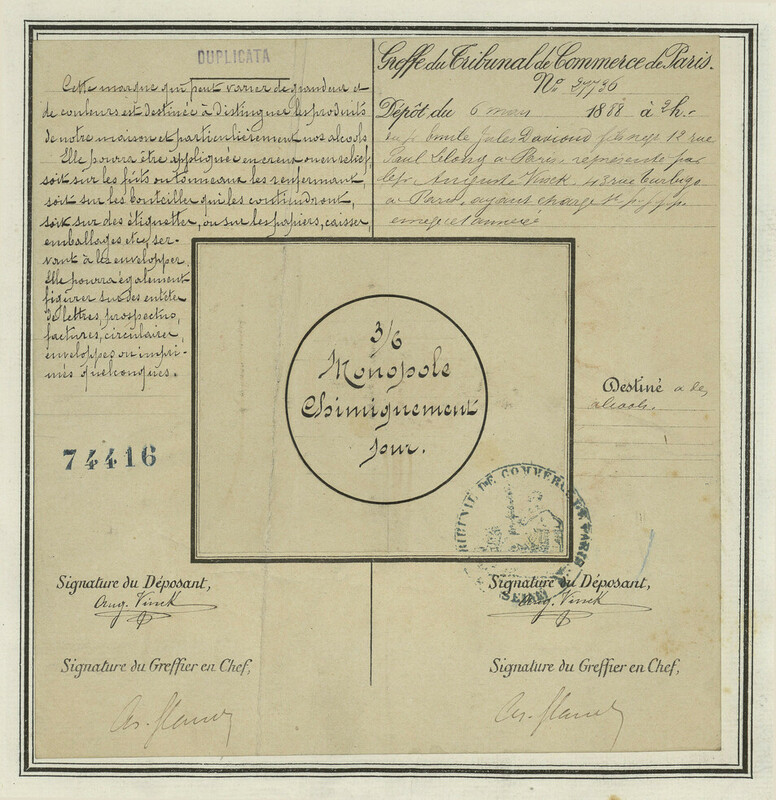 DUPLICATA
Cette marque qui peut varier de grandeur et
de couleurs est destinée à distinguer les produits
de notre maison et particulièrement nos alcools
Elle pourra être appliquée en creux ou en relief,
soit sur les fûts ou tonneaux les renfermant,
soit sur les bouteilles qui les contiendront,
soit sur des étiquettes, ou sur les papiers, caisses
emballages etc, ser-
vant à les envelopper.
Elle pourra également
figurer sur des entêtes
de lettres, prospectus,
factures, circulaires,
enveloppes ou impri-
més quelconques.
74416
Greffe du Tribunal de Commerce de Paris.
No 27736
Dépôt du 6 mars 1888 à 2h.
Emile Jules Davioud 12 rue
Paul Lelong à Paris, représenté par
Auguste Vinck, 43 rue Turbigo
à Paris, ayant charge
3/6
Monopole
Chimiquement
pur.
Destiné a les
alcools.
TRIBUNAL DE COMMERCE DE PARIS
SEINE
Signature du Déposant,
Aug. Vinck
Signature du Déposant,
Aug. Vinck
Signature du Greffier en Chef,
Signature du Greffier en Chef,